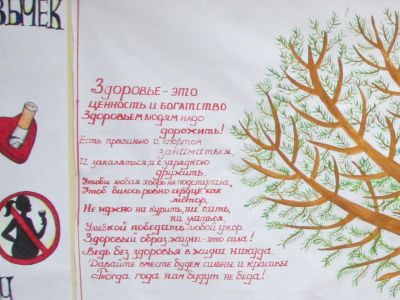 ВЫЧЕК
Здоровье - это
ценность и богатство
Здоровьем людям надо
дорожить!
Есть правильно и спортом
заниматься,
И закаляться, и с зарядкою
дружить.
Чтобы любая хворь не подступила,
Чтоб билось ровно сердце как
мотор,
Не нужно ни курить, ни пить,
ни злиться.
Улыбкой победить любой укор.
Здоровый образ жизни - это сила!
Ведь без здоровья в жизни никуда.
Давайте вместе будем сильны и красивы
Тогда года нам будут не беда!